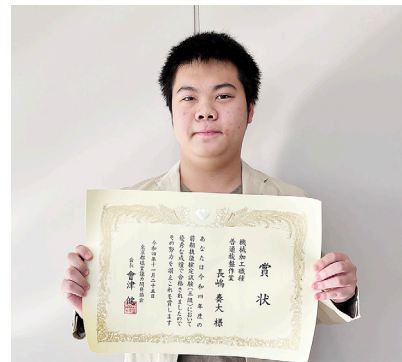 賞状
機械加工職種
普通旋盤作業
長嶋奏大 様
あなたは令和四年度の
前期技能検定試験(三級)において
優秀な成績で合格されましたので
その努力を讃えこれを賞します
令和四年十一月二十五日
東京都職業能力開発協会
会長 會津 健